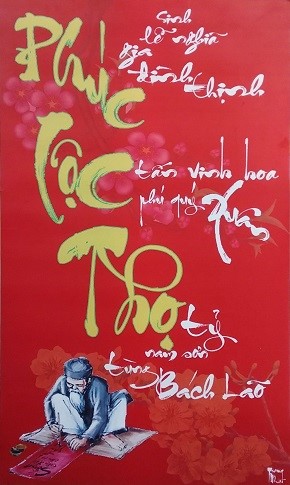 Phúc
Sinh
lễ nghĩa
gia
đình thịnh
Lộc
tấn vinh hoa
phú quý Xuân
Thọ
tỷ
nam sơn
tùng Bách Lão